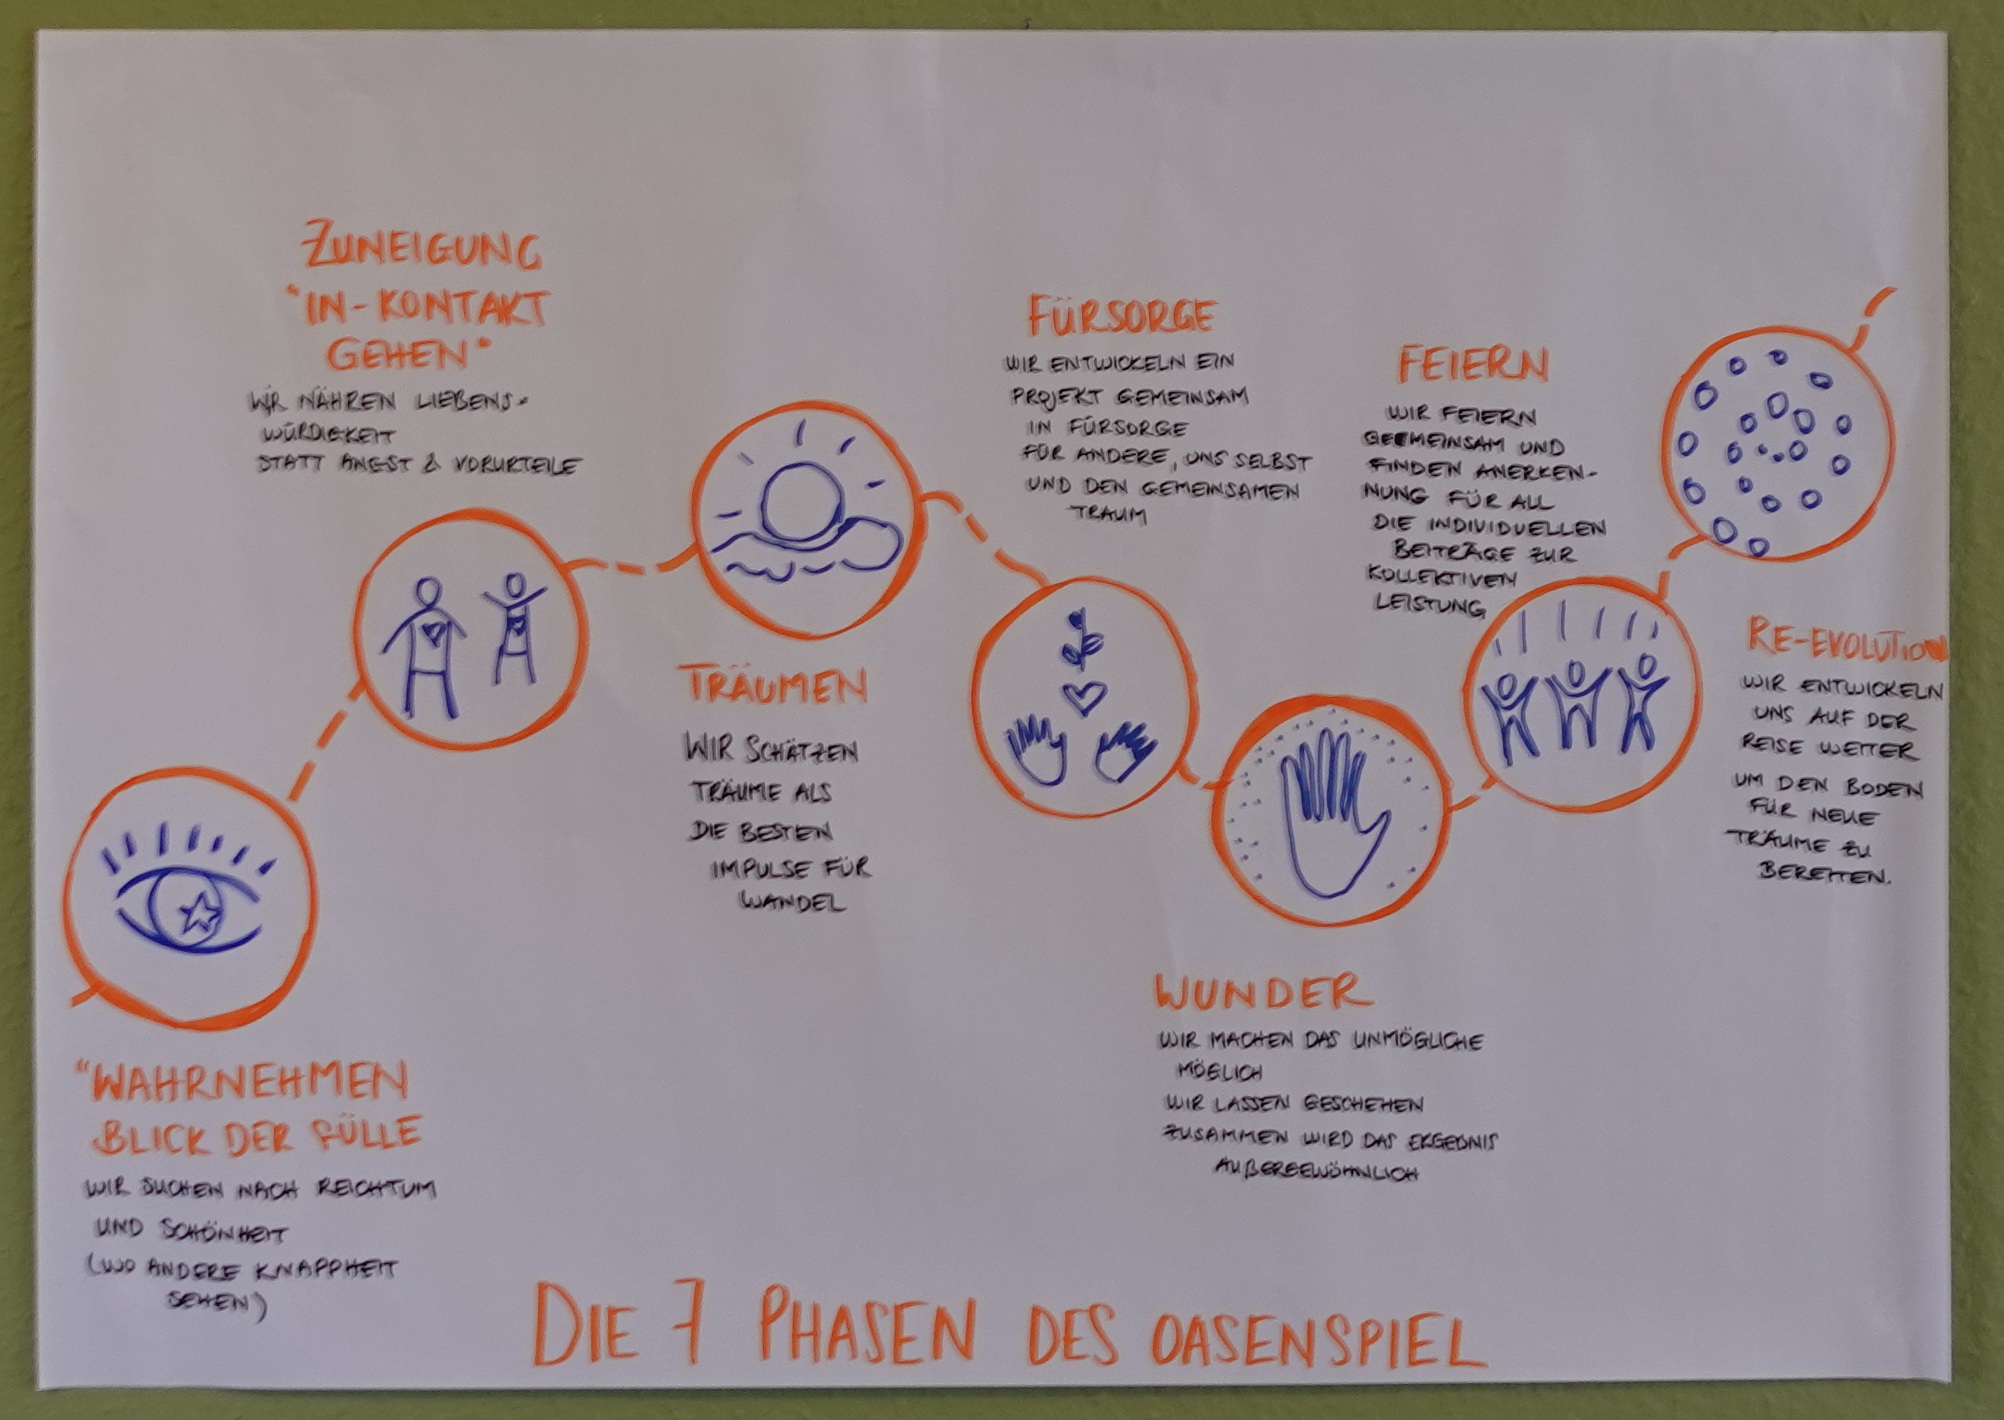 ZUNEIGUNG
"IN-KONTAKT
GEHEN"
WIR NÄHREN LIEBENS-
WÜRDIGKEIT
STATT ANGST & VORURTEILE
TRÄUMEN
WIR SCHÄTZEN
TRÄUME ALS
DIE BESTEN
IMPULSE FÜR
WANDEL
FÜRSORGE
WIR ENTWICKELN EIN
PROJEKT GEMEINSAM
IN FÜRSORGE
FÜR ANDERE, UNS SELBST
UND DEN GEMEINSAMEN
TRAUM
FEIERN
WIR FEIERN
GEMEINSAM UND
FINDEN ANERKEN-
NUNG FÜR ALL
DIE INDIVIDUELLEN
BEITRÄGE ZUR
KOLLEKTIVEN
LEISTUNG
RE-EVOLUTION
WIR ENTWICKELN
UNS AUF DER
REISE WEITER
UM DEN BODEN
FÜR NEUE
TRÄUME ZU
BEREITEN.
WUNDER
WIR MACHEN DAS UNMÖGLICHE
MÖGLICH
WIR LASSEN GESCHEHEN
ZUSAMMEN WIRD DAS ERGEBNIS
AUßERGEWÖHNLICH
"WAHRNEHMEN
BLICK DER FÜLLE
WIR SUCHEN NACH REICHTUM
UND SCHÖNHEIT
(WO ANDERE KNAPPHEIT
SEHEN)
DIE 7 PHASEN DES OASENSPIEL